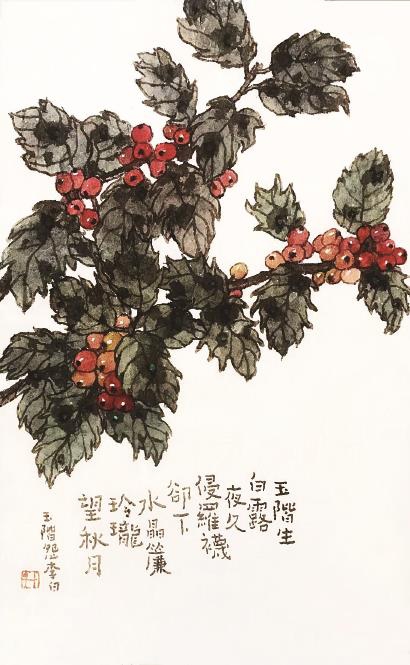 玉階生
白露
夜久
侵羅襪
卻下
水晶簾
玲瓏
望秋月
玉階怨李白